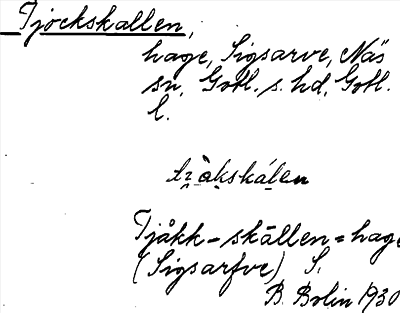 Tjockskallen,
hage, Sigsarve, Näs
sn, Gotl. s. hd, Gotl.
l.
Tjåkk-skällen = hage
(Sigsarfve) S.
B. Bolin 1930